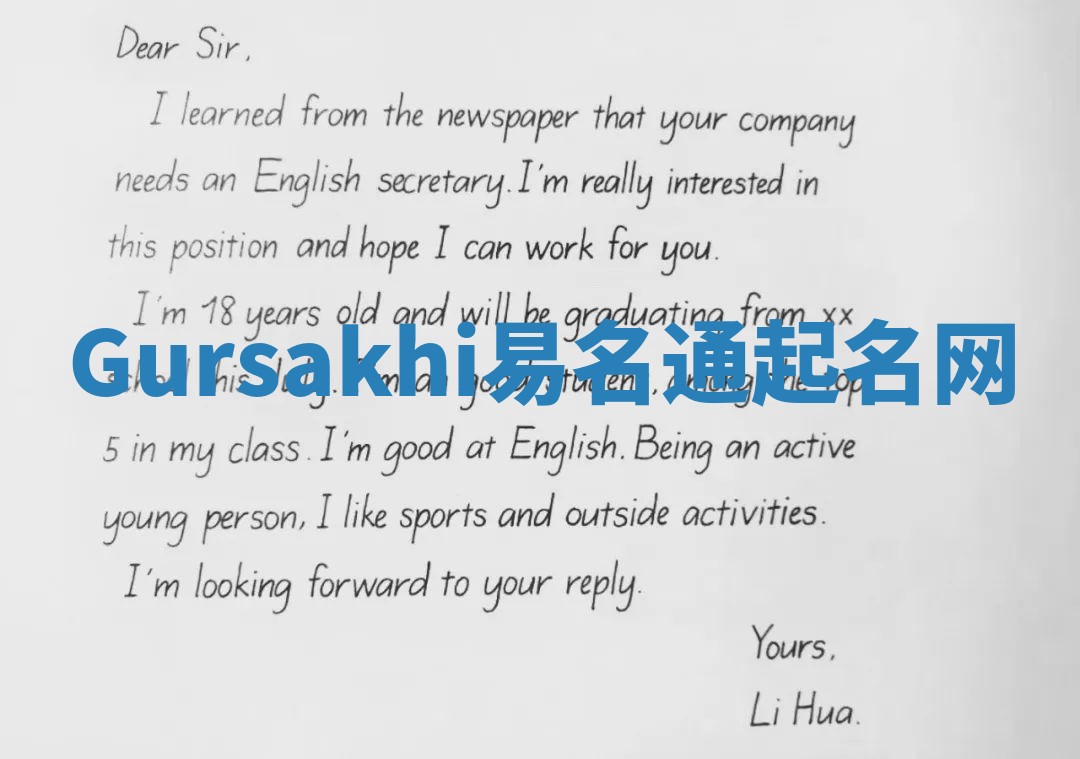 Dear Sir,
I learned from the newspaper that your company
needs an English secretary. I'm really interested in
this position and hope I can work for you.
I'm 18 years old and will be graduating from xx
Gursakhi易名通起名网
school this July. I'm a good student, among the top
5 in my class. I'm good at English. Being an active
young person, I like sports and outside activities.
I'm looking forward to your reply.
Yours,
Li Hua.